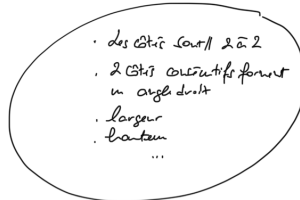 . Les côtés sont // 2 à 2
. 2 côtés consécutifs forment
un angle droit
. largeur
. hauteur
...